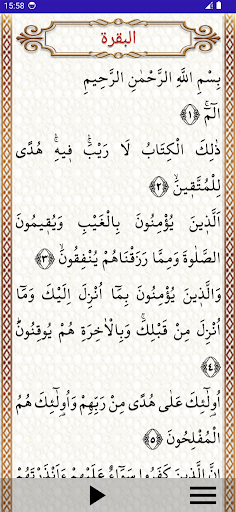 15:58
البقرة
بِسْمِ اللَّهِ الرَّحْمٰنِ الرَّحِيمِ
الٓمٓ ۚ ﴿١﴾
ذٰلِكَ الْكِتَابُ لَا رَيْبَ ۚۛ فِيهِ ۚۛ هُدًى
لِلْمُتَّقِينَ ۙ ﴿٢﴾
اَلَّذِينَ يُؤْمِنُونَ بِالْغَيْبِ وَيُقِيمُونَ
الصَّلٰوةَ وَمِمَّا رَزَقْنَاهُمْ يُنْفِقُونَ ۙ ﴿٣﴾
وَالَّذِينَ يُؤْمِنُونَ بِمَٓا اُنْزِلَ اِلَيْكَ وَمَٓا
اُنْزِلَ مِنْ قَبْلِكَ ۚ وَبِالْاٰخِرَةِ هُمْ يُوقِنُونَ ۜ
﴿٤﴾
اُو۬لٰٓئِكَ عَلٰى هُدًى مِنْ رَبِّهِمْ وَاُو۬لٰٓئِكَ هُمُ
الْمُفْلِحُونَ ﴿٥﴾
اِنَّ الَّذِينَ كَفَرُوا سَوَٓاءٌ عَلَيْهِمْ ءَاَنْذَرْتَهُمْ